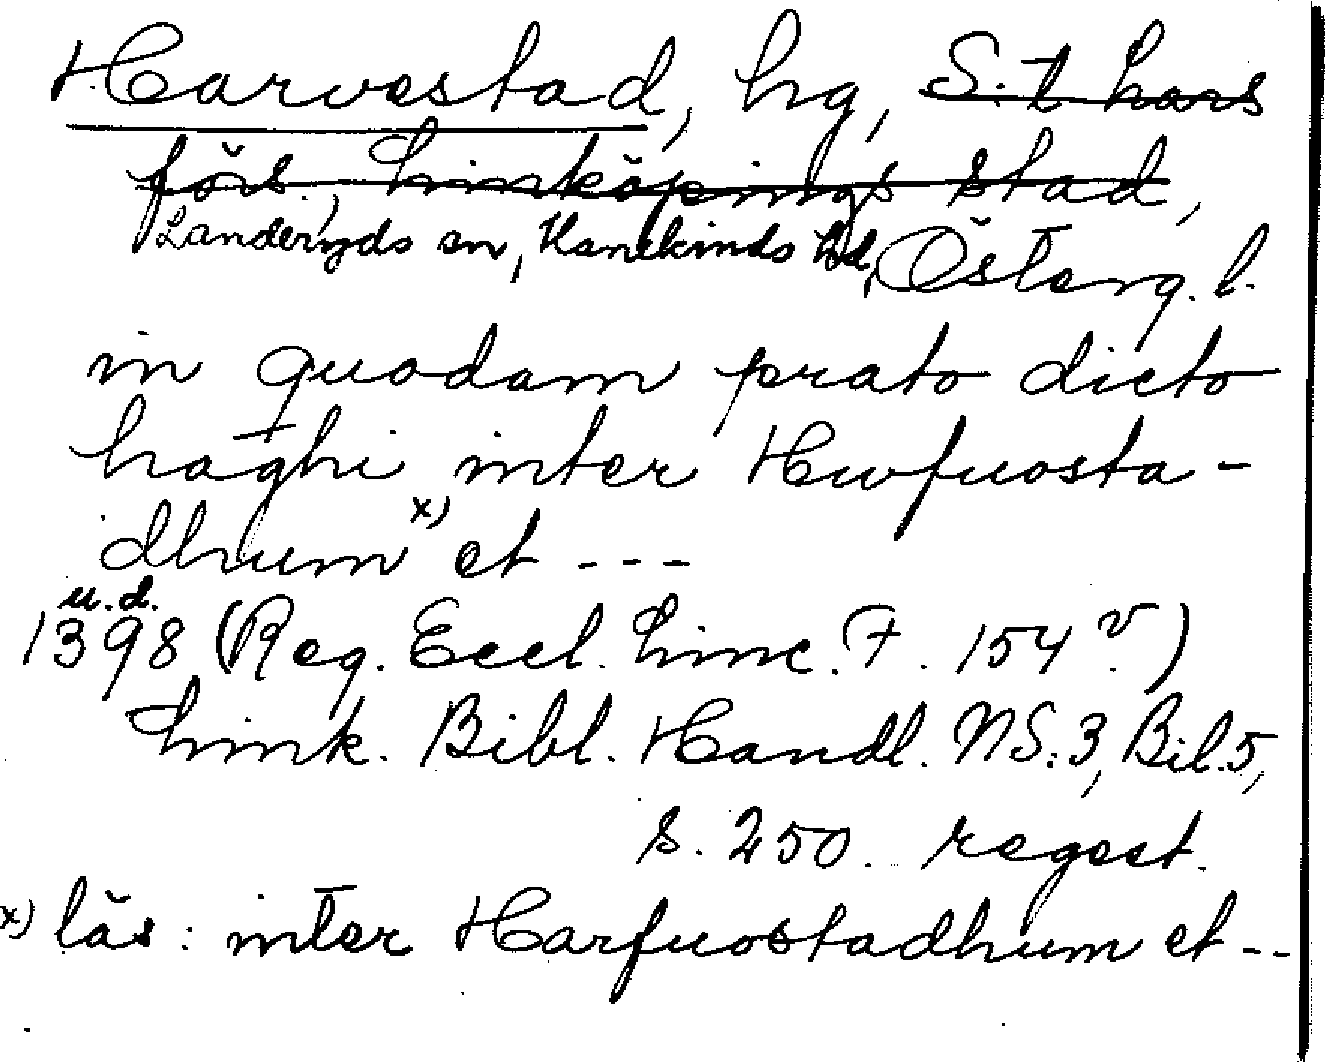 Harvestad, hg, S:t Lars
förs., Linköpings stad,
Landeryds sn, Hanekinds hd, Österg. l.
in quodam prato dicto
haghi inter Hwfuosta-
dhum x) et ---
u.d.
1398 (Reg. Eccl. Linc. F. 154 v.)
Link. Bibl. Handl. NS:3, Bil.5,
s. 250. regest.
x) läs: inter Harfuostadhum et --